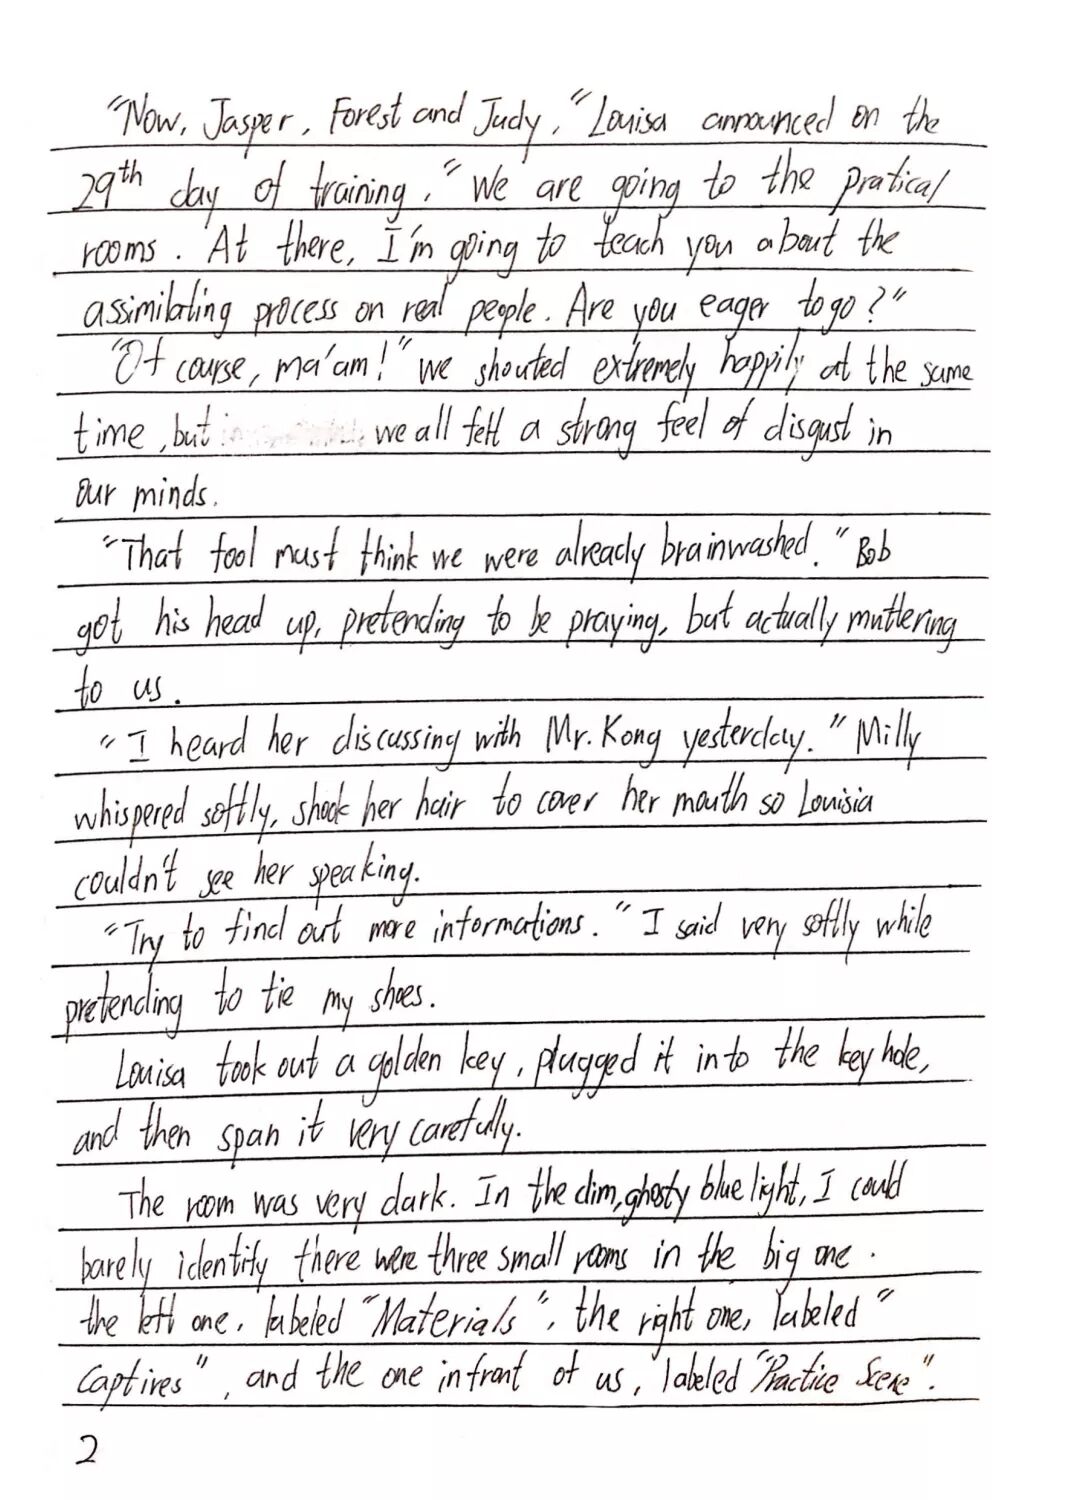 "Now, Jasper, Forest and Judy," Louisa announced on the
29th day of training, "We are going to the pratical
rooms. At there, I'm going to teach you about the
assimilating process on real people. Are you eager to go?"
"Of course, ma'am!" we shouted extremely happily at the same
time, but we all felt a strong feel of disgust in
our minds.
"That fool must think we were already brainwashed." Bob
got his head up, pretending to be praying, but actually muttering
to us.
"I heard her discussing with Mr. Kong yesterday." Milly
whispered softly, shook her hair to cover her mouth so Louisia
couldn't see her speaking.
"Try to find out more informations." I said very softly while
pretending to tie my shoes.
Louisa took out a golden key, plugged it into the key hole,
and then span it very carefully.
The room was very dark. In the dim, ghosty blue light, I could
barely identify there were three small rooms in the big one.
the left one, labeled "Materials", the right one, labeled "
Captires", and the one infront of us, labeled "Practice Scene".
2